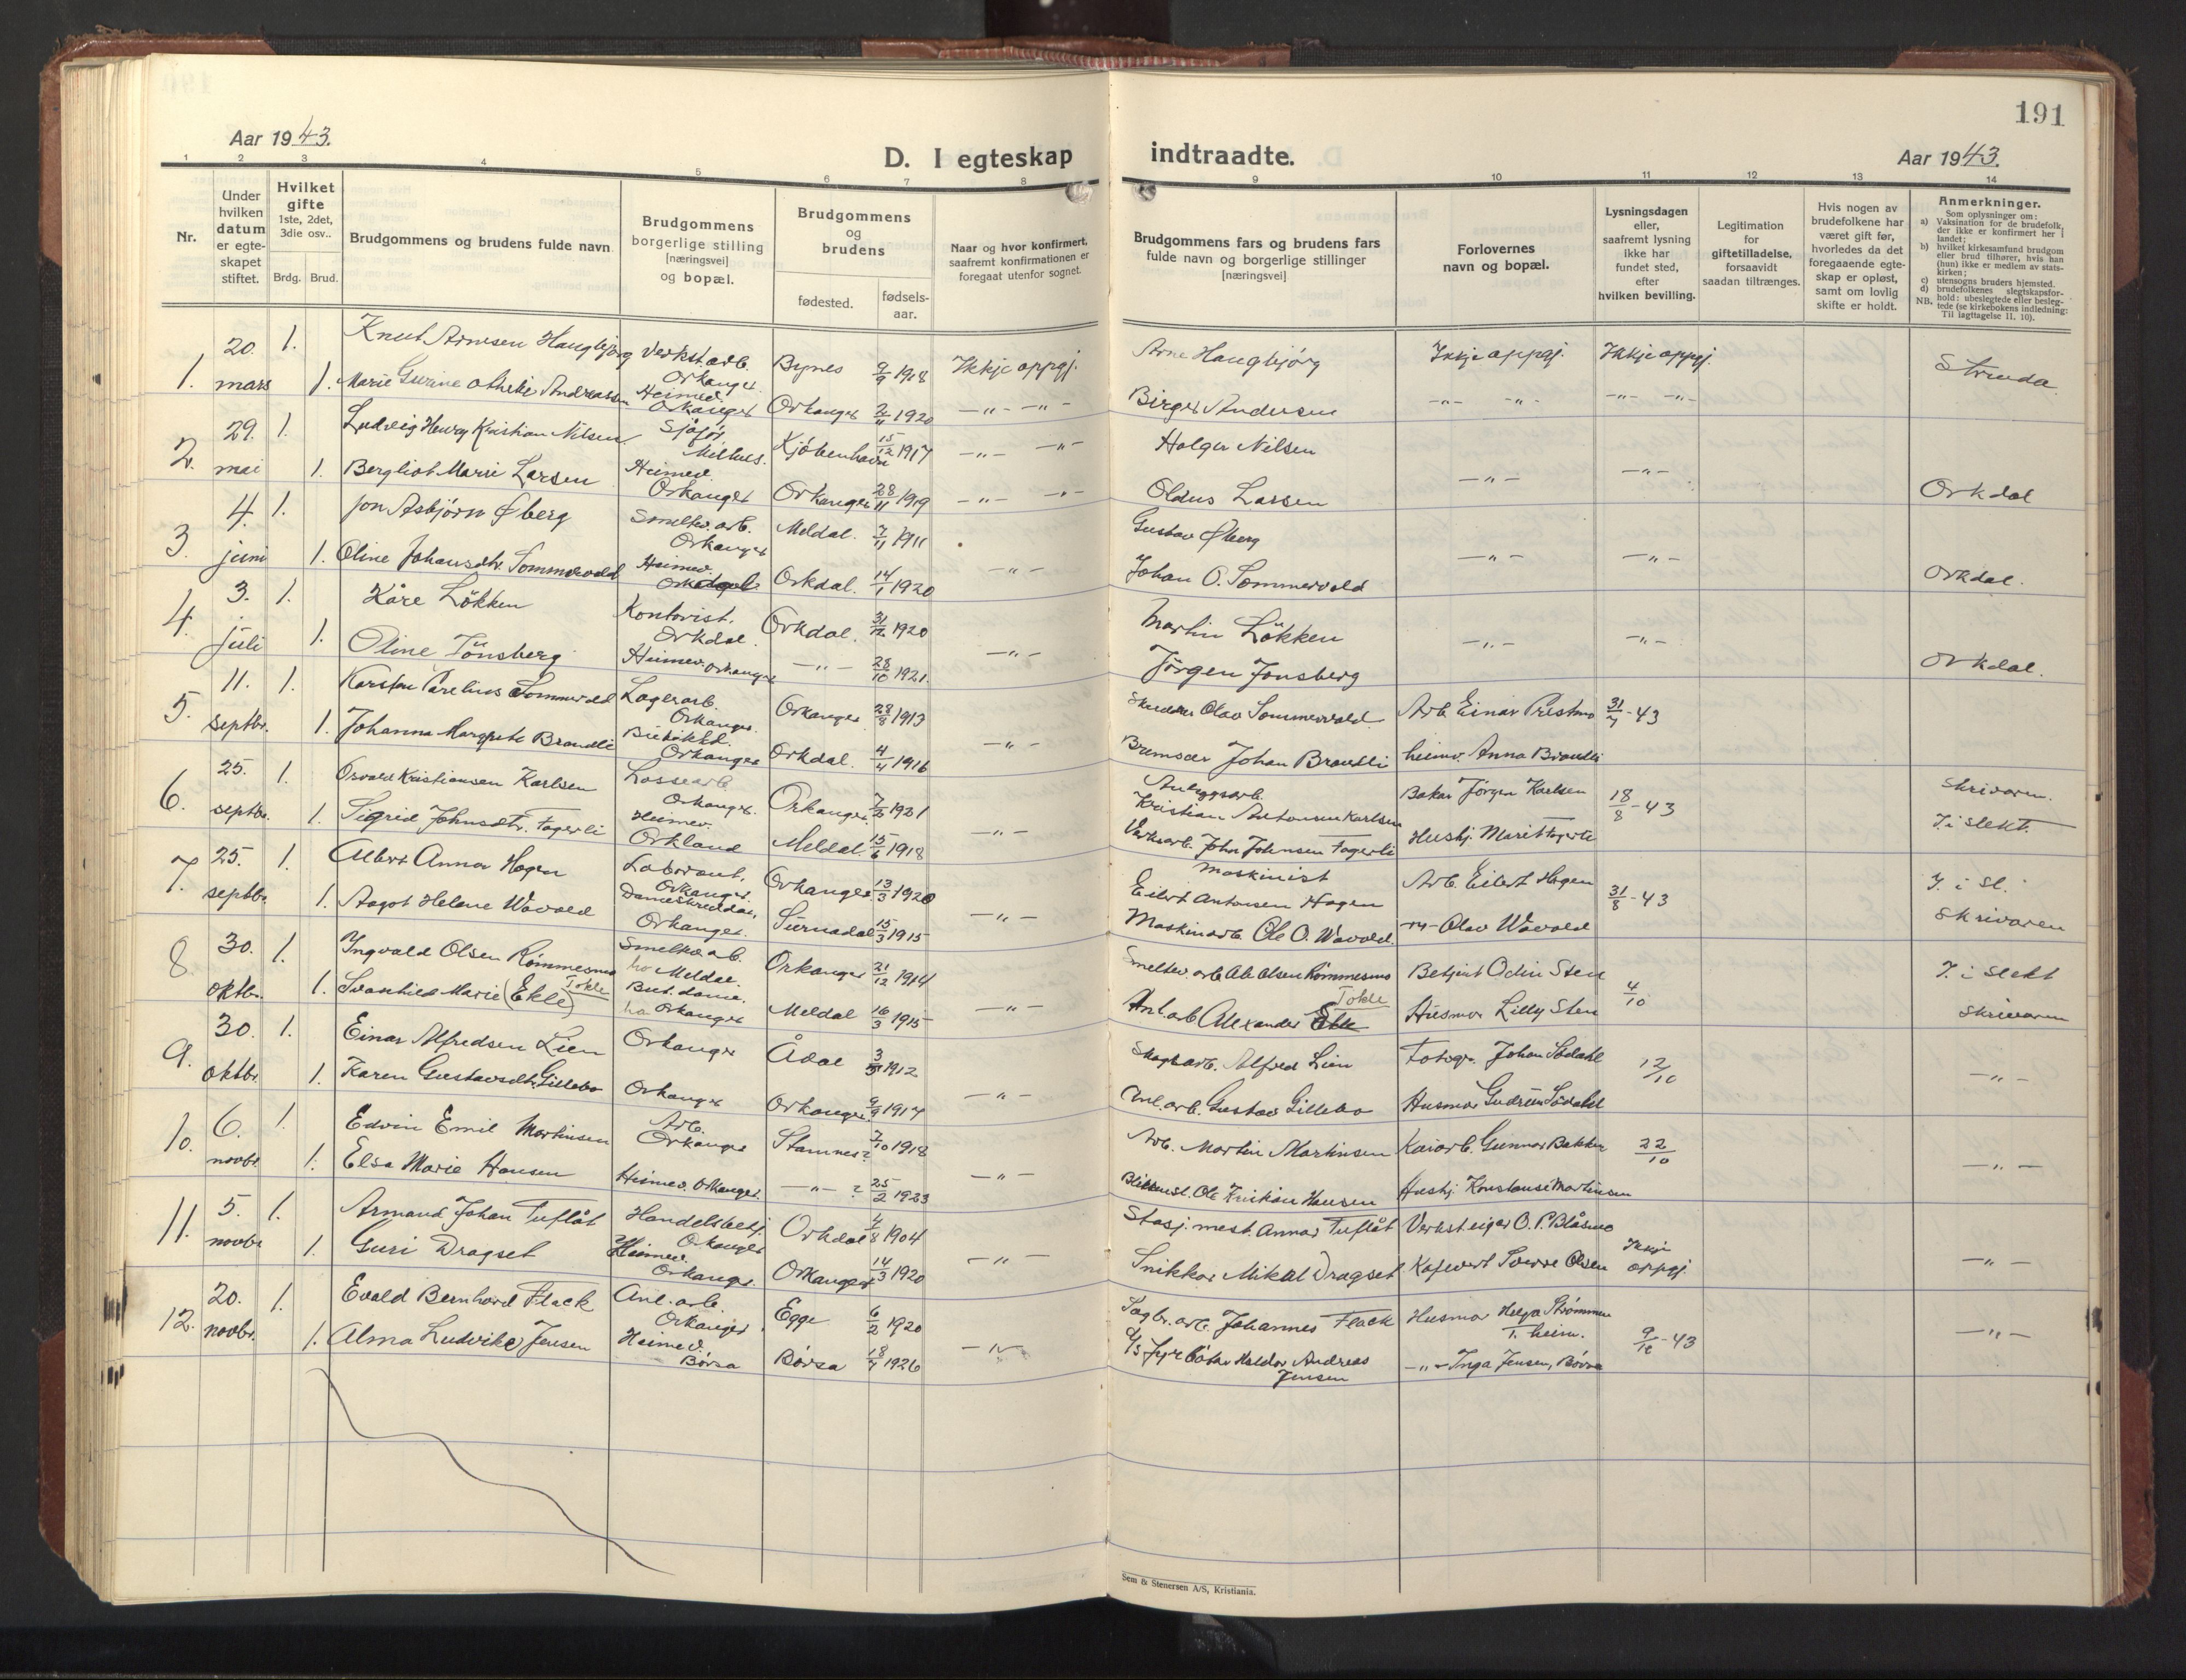 191
Aar 1943.
D. I egteskap indtraadte.
Aar 1943.
1 2 3 4 5 6 7 8 9 10 11 12 13 14
Nr.
Under hvilken datum er egte-skapet stiftet.
Hvilket gifte
1ste, 2det, 3die osv..
Brdg. Brud.
Brudgommens og brudens fulde navn.
Brudgommens borgerlige stilling [næringsvei] og bopæl.
Brudgommens og brudens
fødested.
fødsels-aar.
Naar og hvor konfirmert, saafremt konfirmationen er foregaat utenfor sognet.
Brudgommens fars og brudens fars fulde navn og borgerlige stillinger [næringsvei]
Forlovernes navn og bopæl.
Lysningsdagen eller, saafremt lysning ikke har fundet sted, efter hvilken bevilling.
Legitimation for giftetilladelse, forsaavidt saadan tiltrænges.
Hvis nogen av brudefolkene har været gift før, hvorledes da det foregaaende egte-skap er opløst, samt om lovlig skifte er holdt.
Anmerkninger.
Som oplysninger om:
a) Vaksination for de brudefolk, der ikke er konfirmert her i landet;
b) hvilket kirkesamfund brudgom eller brud tilhører, hvis han (hun) ikke er medlem av stats-kirken;
c) utensogns bruders hjemsted.
d) brudefolkenes slegtskapsfor-hold: ubeslegtede eller besleg-tede (se kirkebokens indledning:
NB. Til Iagttagelse II. 10).
1. 20. mars 1. Knut Arnesen Haugbjørg Verkst.arb. Orkanger Bynes 9/9 1918 Ikkje oppgj. Arne Haugbjørg Ikkje oppgj. Ikkje oppgj. Strinda
1. Marie Heimev. Orkanger Orkanger 1920 -"- -"- Birger Andersen -"- -"- -"- -"-
2. 29. mai 1. Ludvig Henry Kristian Nilsen Sjåfør Melhus. Kjøbenhavn 15/12 1917 -"- -"- Holger Nilsen
1. Bergliot Marie Larsen Heimev. Orkanger Orkanger 28/11 1919 -"- -"- Oldus Larsen -"- -"- Orkdal
3. 4. juni 1. Jon Asbjørn Øberg Smeltev.arb. Orkanger Meldal. 7/11 1911 Gustav Øberg
1. Oline Johansdtr. Sommervold Heimev. Orkdal. 14/1 1920 -"- Johan O. Sommervold -"- -"- Orkdal.
4. 3. juli 1. Kåre Løkken Kontorist. Orkdal Orkdal. 31/12 1920 Martin Løkken
1. Oline Tönsberg Heimev. Orkanger -"- 28/10 1921. -"- Jørgen Jonsberg -"- -"- Orkdal.
5. 11. septbr. 1. Karsten Parelius Sommervold Lagerarb. Orkanger Orkanger 1913 Olav Sommervold Arb. Einar Prestmo 31/7-43
1. Johanna Margrete Brandli Orkanger Orkdal. 4/4 1916 -"- Bremser Johan Brandli heimv. Anna Brandli
6. 25. septbr. 1. Osvald Kristiansen Karlsen Lossearb. Orkanger. Orkanger. 7/2 1921 Anleggsarb. Kristian Antonsen Karlsen Bakar Jørgen Karlsen 18/8-43 Skrivaren.
1. Sigrid Johnsdtr. Fagerli Heimev. Orkland Meldal. 15/6 1918 -"- Verksarb. John Johnsen Fagerli Hushj. Marit Fagerli I. i slekt.
7. 25. septbr. 1. Albert Annar Hagen Laborant. Orkanger. Orkanger. 13/3 1920 Maskinist Eilert Antonsen Hagen Arb. Eilert Hagen 31/8-43 I. i sl.
1. Aagot Helene Wavold Dameskredder, Orkanger. Surnadal 15/3 1915 -"- Maskinarb. Ole O. Wavold. -"- Olav Wavold Skrivaren
8. 30. oktbr. 1. Ingvald Olsen Rømmesmo Smeltev.arb. Meldal. Orkanger 21/12 1914 Smeltev.arb. Ole Olsen Rømmesmo Betjent Odin Sten 4/10 I. i slekt
1. Svanhild Marie (Ekle) Tokle But.dame. Orkanger Meldal 16/3 1915 -"- Anl.arb. Alexander Ekle Tokle Husmor Lilly Sten Skrivaren
9. 30. oktbr. 1. Einar Alfredsen Lien Orkanger Ådal 1912 Skogsarb. Alfred Lien Fotogr. Johan Sødahl 12/10 -"-
1. Karen Gustavsdtr. Gillebo Orkanger Orkanger. 9/9 1917 -"- Anl.arb. Gustav Gillebo Husmor Gudrun Sødahl
10. 6. novbr. 1. Edvin Emil Martinsen Arb. Orkanger Stamnes? 7/10 1918 Arb. Martin Martinsen Kaiarb. Gunnar Bakken 22/10
1. Elsa Marie Hansen Heimev. Orkanger. -"- ? 25/2 1923 -"- Ole Kristian Hansen Hushj. Konstanse Martinsen -"-
11. 5. novbr. 1. Armand Johan Tuflåt Handelsbetj. Orkanger Orkdal 1904 Stasj.mest. Annar Tuflåt Verksteigar O. P. Blåsmo Ikkje oppgj.
1. Guri Dragset Heimev. Orkanger. Orkanger 14/3 1920 -"- Snikkar Mikal Dragset Kafevert Sverre Olsen -"-
12. 20. novbr. 1. Evald Bernhard Flack Anl.arb. Orkanger. Egge 6/2 1920 Sagbr.arb. Johannes Flack Husmor Helga Strømmen T.heim. 9/12-43
1. Alma Ludvike Jensen Heimev. Børsa Børsa 18/7 1926 -"- Fyrbøter Haldor Andreas Jensen -"- Inga Jensen, Børsa -"-
Sem & Stenersen A/S, Kristiania.